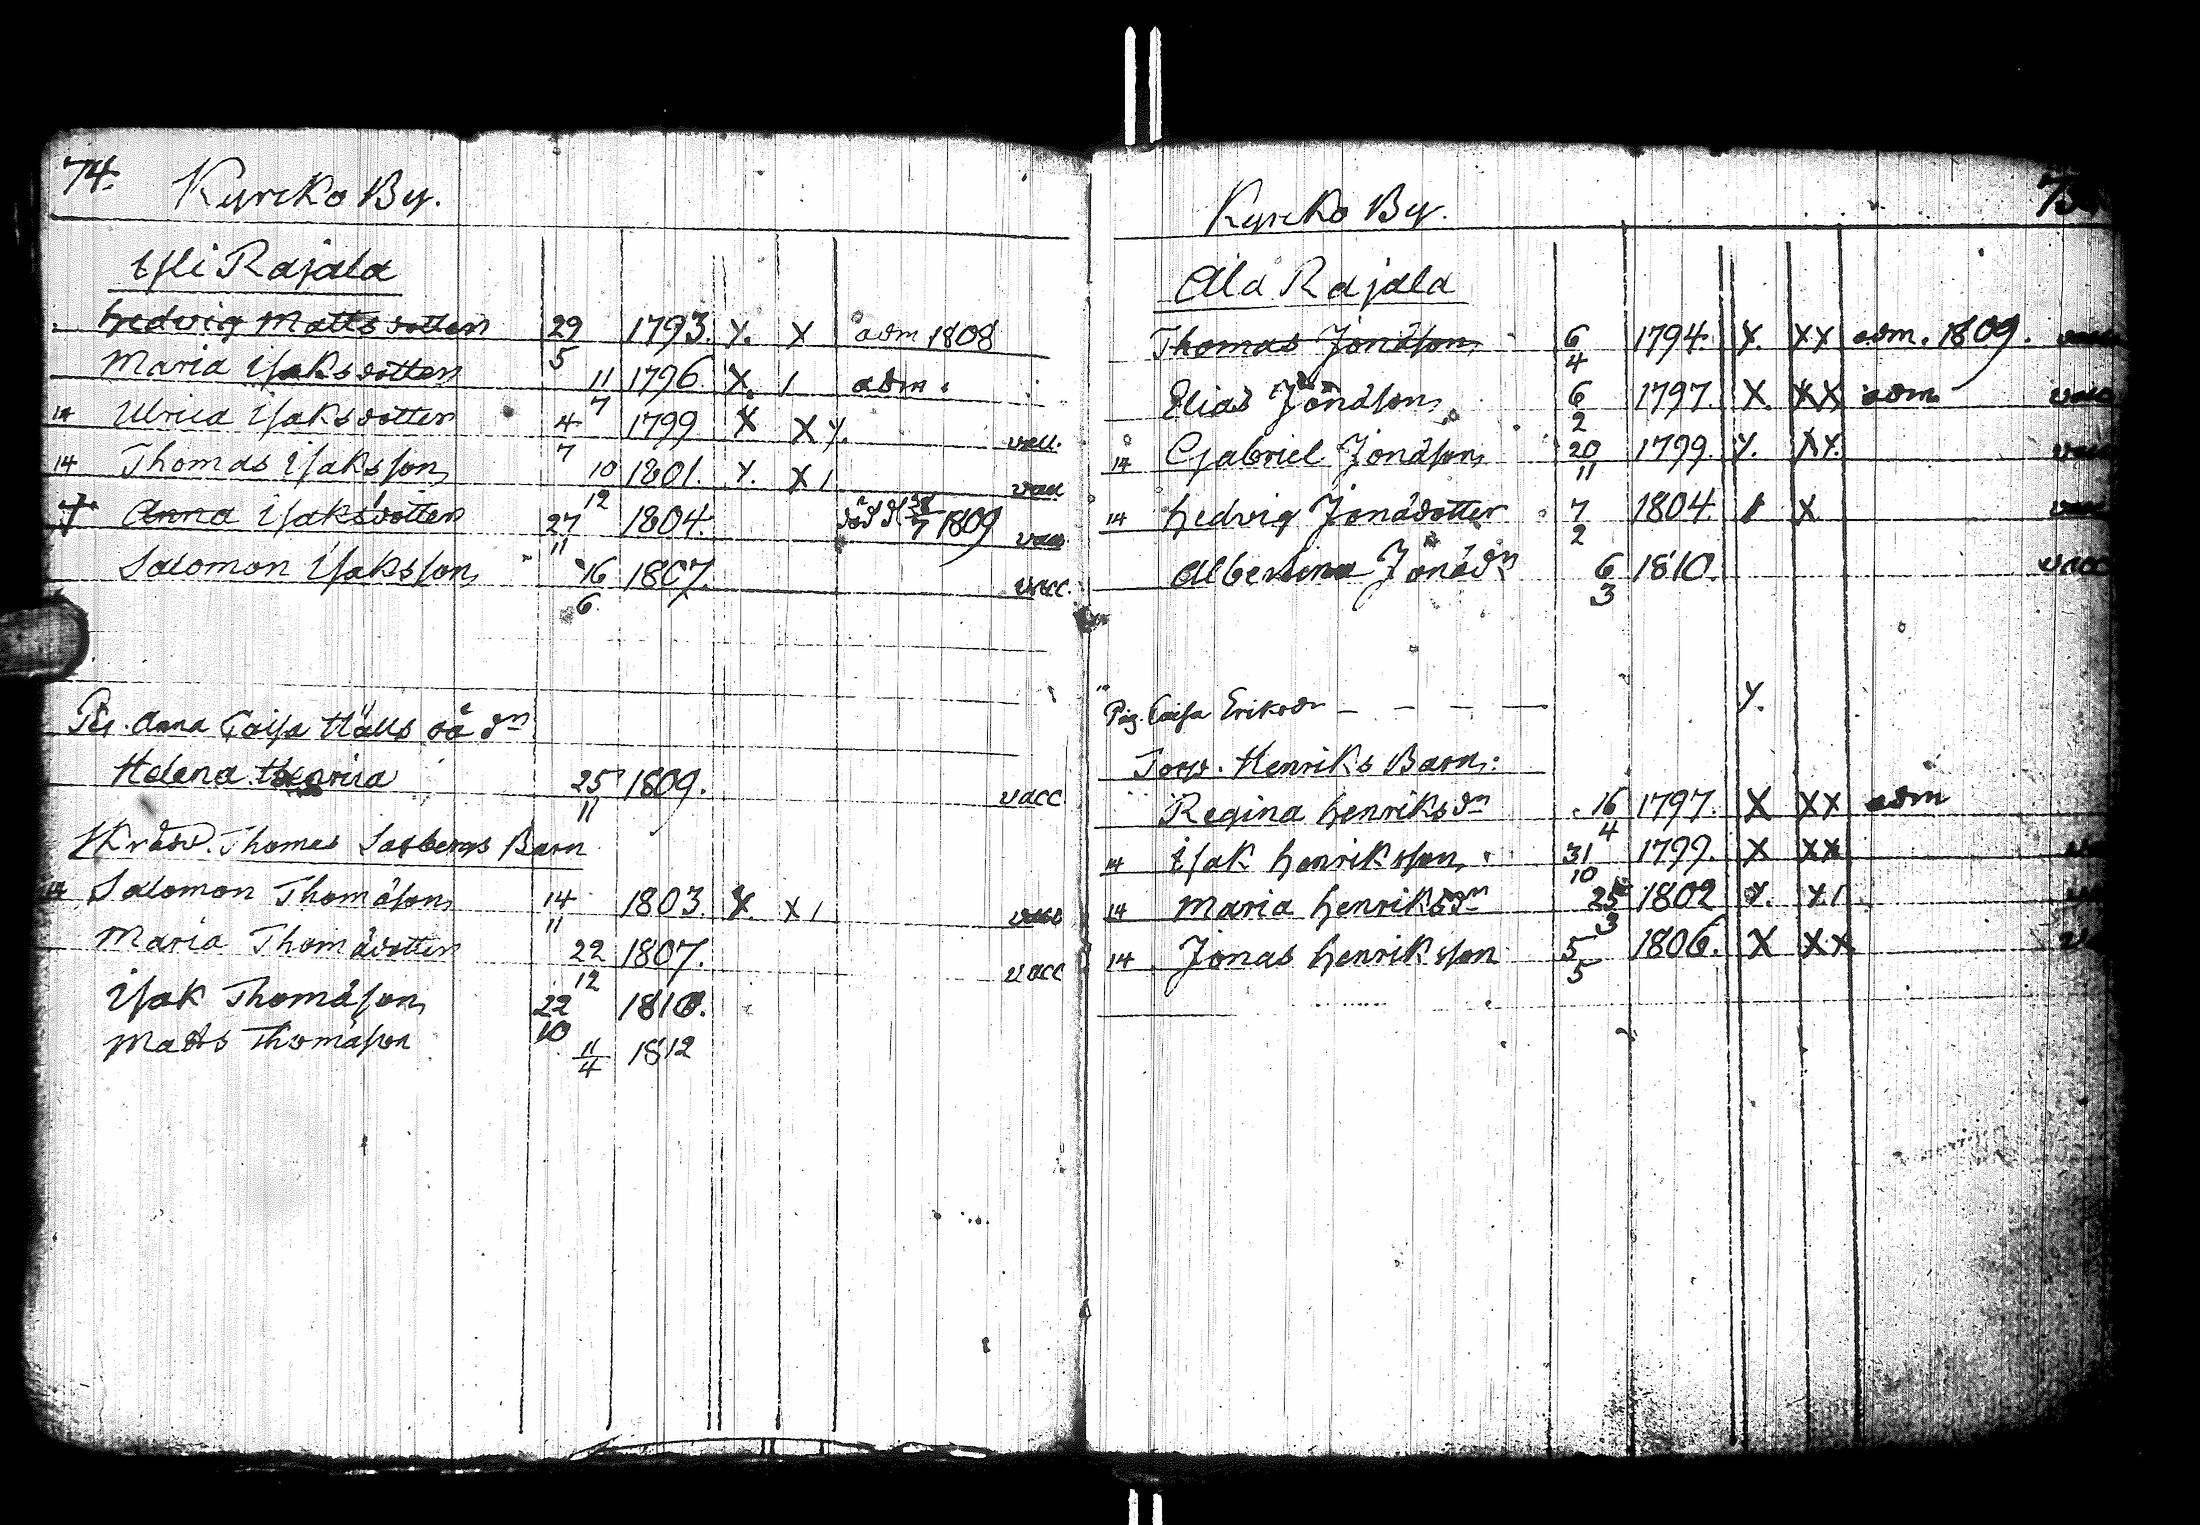 74.
Kyrcko By.
Yli Rajala
Hedvig Mattsdotter 29/5 1793. X. X adm 1808
Maria Isaksdotter 11/7 1796. X. 1 adm.
14 Ulrica Isaksdotter 4/7 1799 X X X. vacc.
14 Thomas Isaksson 10/12 1801. X. X 1 vacc
† Anna Isaksdotter 27/11 1804. död d. /7 1809 vacc
Salomon Isaksson 16/6 1807. vacc.
Anna Caisa
Helena 25/11 1809. vacc
Thomas Barn
14 Salomon Thomasson 14/11 1803. X X 1 vacc
Maria Thomadotter 22/12 1807. vacc
Isak Thomasson 22/10 1810.
Matts Thomasson 11/4 1812
Kyrcko By.
Ala Rajala
Thomas Jonasson 6/4 1794. X. XX adm. 1809. vacc
Elias Jonasson 6/2 1797. X. XX adm. vacc
14 Gabriel Jonasson 20/11 1799. X. XX. vacc
14 Hedvig Jonadotter 7/2 1804. 1 X vacc
Albertina Jonadr 6/3 1810. vacc
Pig. Caisa Eriksdr — — — — X.
Torp. Henriks Barn:
Regina Henriksdr 16/4 1797. X XX adm
14 Isak Henriksson 31/10 1799. X XX
14 Maria Henriksdr 25/3 1802 X. X1
14 Jonas Henriksson 5/5 1806. X XX